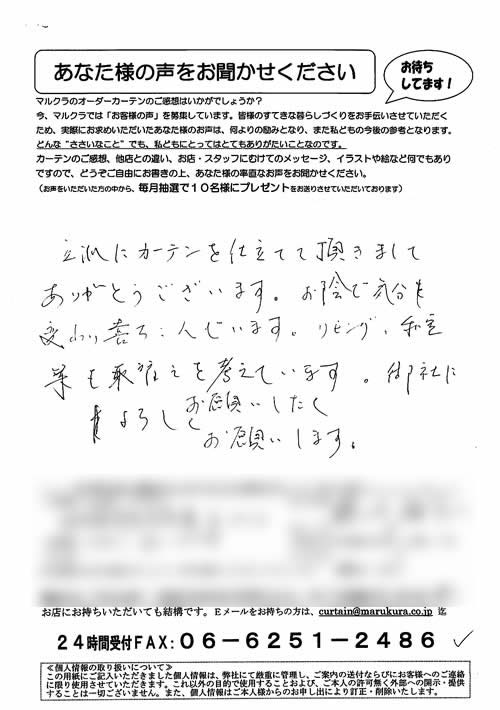 あなた様の声をお聞かせください
お待ち
してます!
マルクラのオーダーカーテンのご感想はいかがでしょうか?
今、マルクラでは「お客様の声」を募集しています。皆様のすてきな暮らしづくりをお手伝いさせていただく
ため、実際にお求めいただいたあなた様のお声は、何よりの励みとなり、また私どもの今後の参考となります。
どんな“ささいなこと”でも、私どもにとってはとてもありがたいことなのです。
カーテンのご感想、他店との違い、お店・スタッフにむけてのメッセージ、イラストや絵など何でもあり
ですので、どうぞご自由にお書きの上、あなた様の率直なお声をお聞かせください。
(お声をいただいた方の中から、毎月抽選で10名様にプレゼントをお送りさせていただいております)
立派にカーテンを仕立てて頂きまして
ありがとうございます。お陰で気分も
変わり喜こんでいます。リビング、和室
も取替えを考えています。御社に
お願いしたく
よろしく
お願いします。
お店にお持ちいただいても結構です。Eメールをお持ちの方は、curtain@marukura.co.jp 迄
24時間受付FAX:06-6251-2486
≪個人情報の取り扱いについて≫
この用紙にご記入いただきました個人情報は、弊社にて厳重に管理し、ご案内の送付ならびにお客様へのご連絡
に限り使用させていただきます。これ以外の目的で使用することおよび、ご本人の許可無く外部への開示・提供
することは一切ございません。また、個人情報はご本人様からのお申し出により訂正・削除いたします。